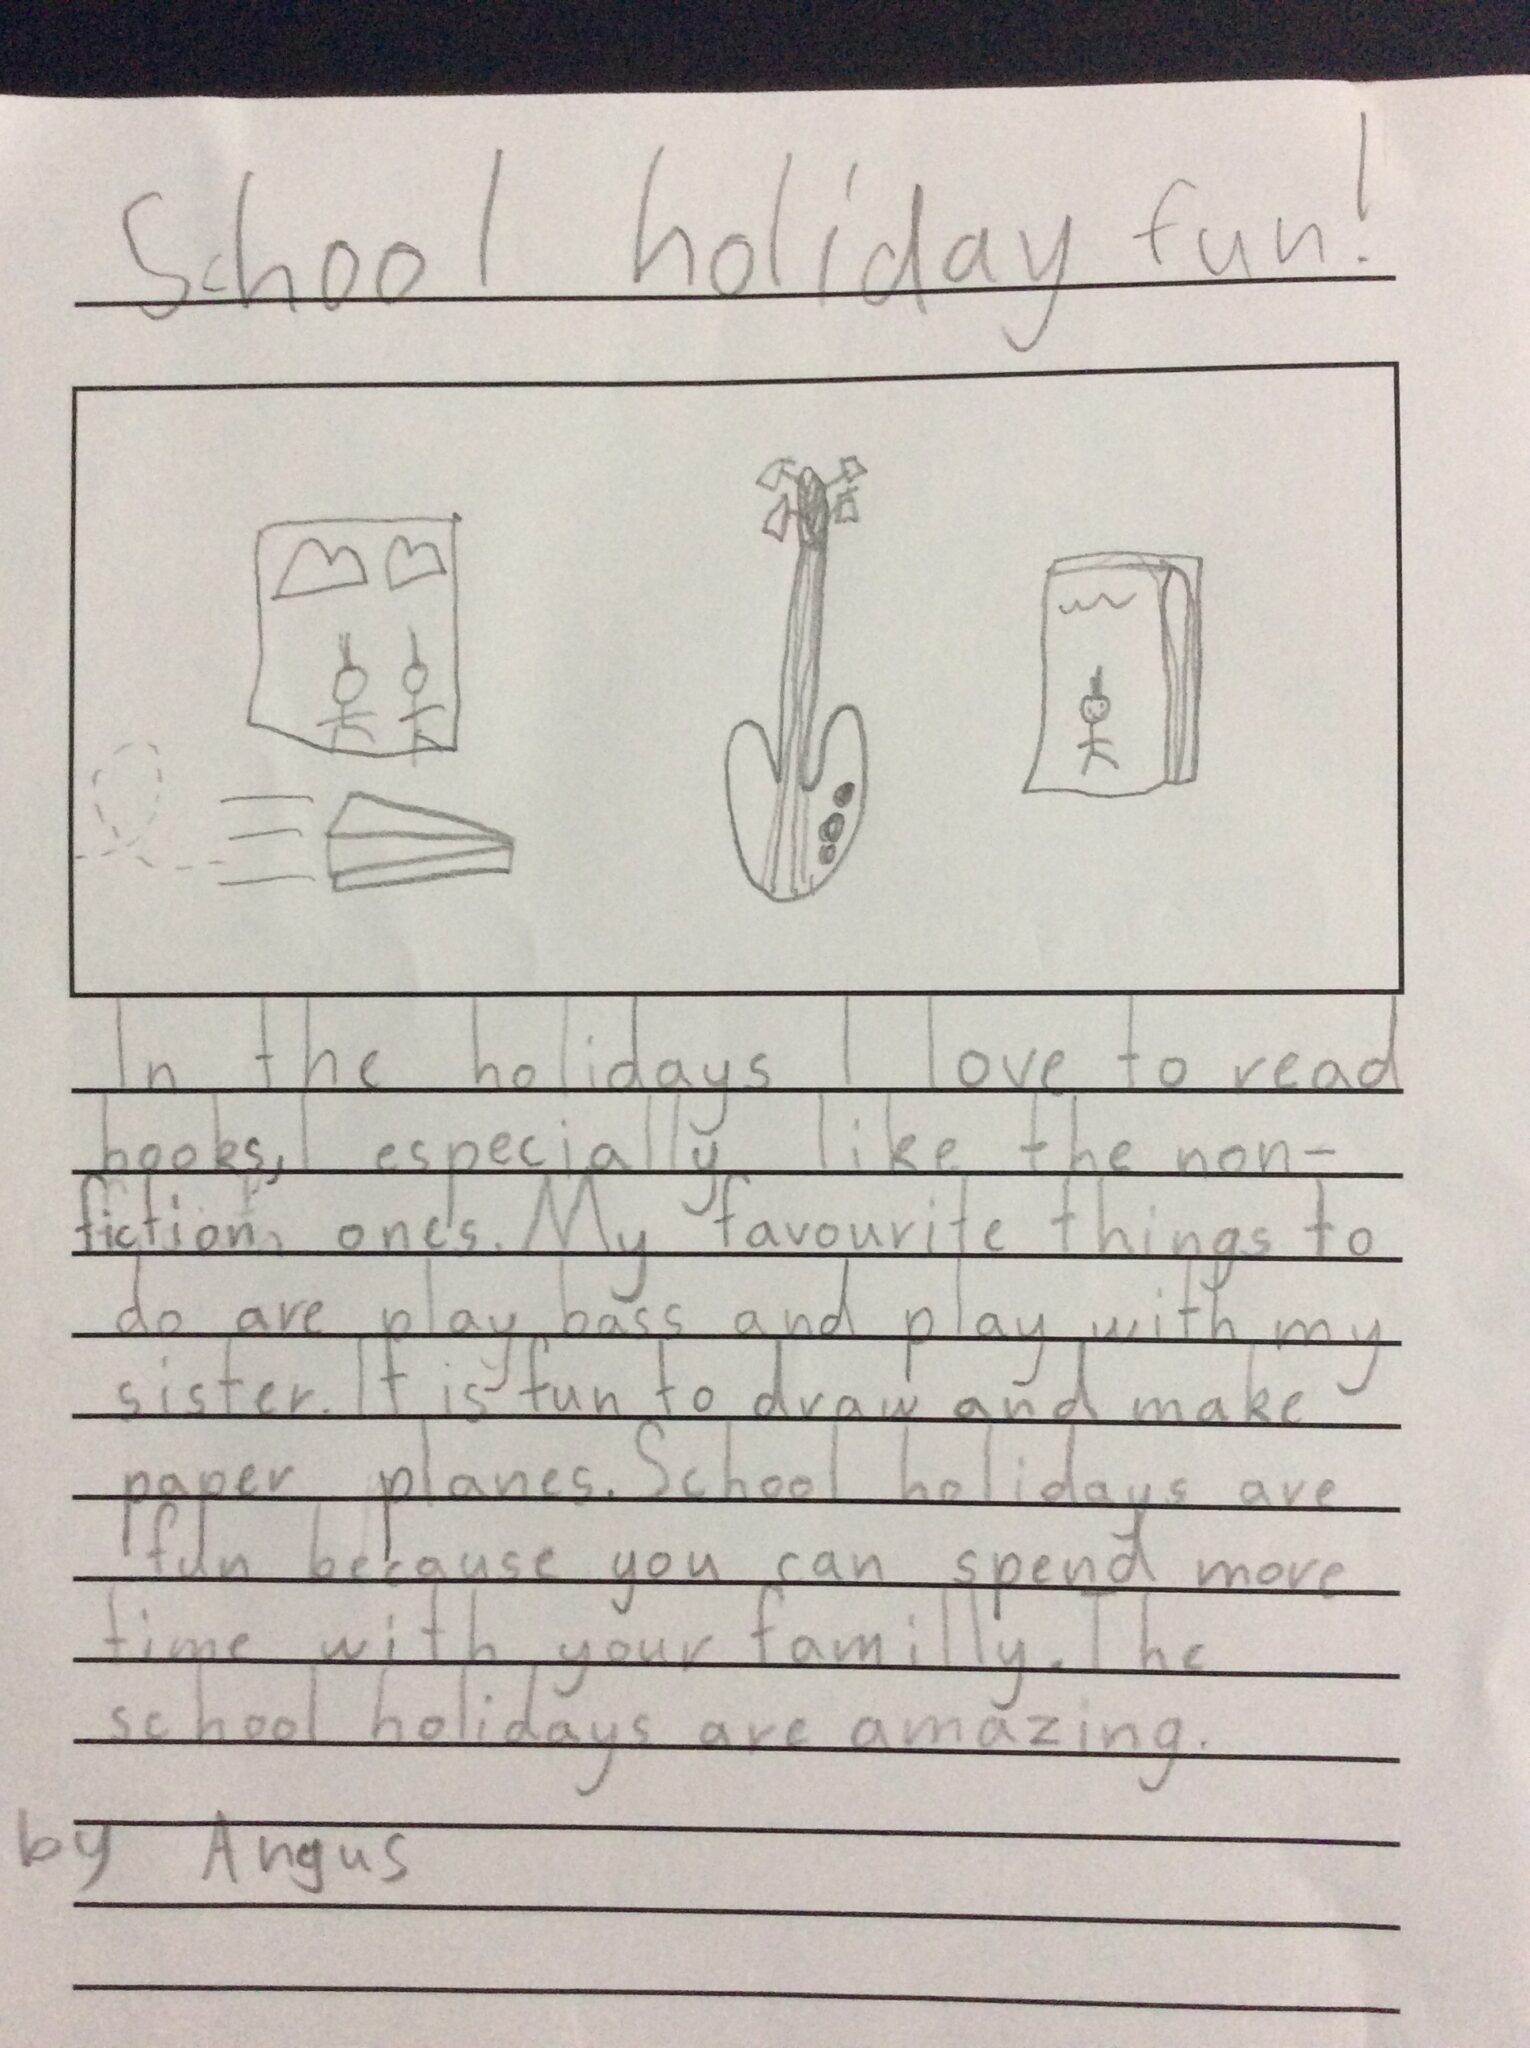 School holiday fun!
In the holidays I love to read
books, I especially like the non-
fiction ones. My favourite things to
do are play bass and play with my
sister. It is fun to draw and make
paper planes. School holidays are
fun because you can spend more
time with your familly. The
school holidays are amazing.
by Angus